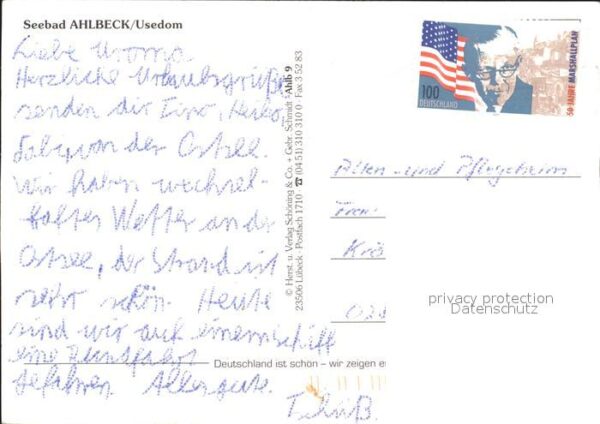 Seebad AHLBECK/Usedom
Liebe Uroma
Herzliche Urlaubsgrüße
senden dir Tino, Heiko,
von der Ostsee.
Wir haben wechsel-
haftes Wetter an der
Ostsee, der Strand ist
sehr schön. Heute
sind wir auf einem Schiff
eine Rundfahrt
gefahren. Alles gute.
Tschüß.
© Herst. u. Verlag Schöning & Co. + Gebr. Schmidt Ahlb 9
23506 Lübeck · Postfach 1710 · ☎ (04 51) 310 310 0 · Fax 3 52 83
100
DEUTSCHLAND
50 JAHRE MARSHALLPLAN
Alten- und Pflegeheim
Krö
02
privacy protection
Datenschutz
Deutschland ist schön – wir zeigen e